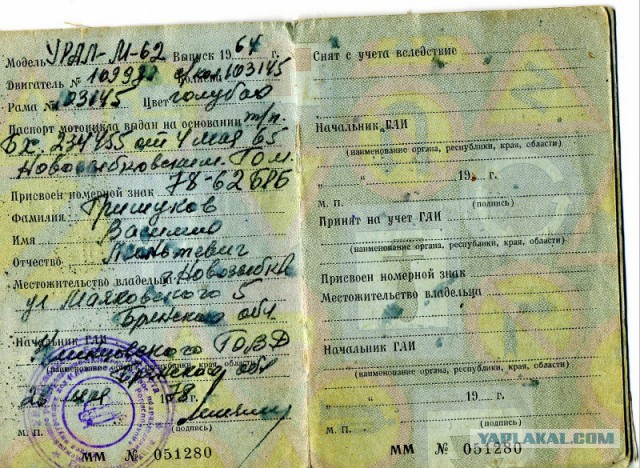 Модель УРАЛ-М-62 Выпуск 1964 г.
Двигатель № 10999 с/ко. 103145
Рама № 103145 Цвет голубой
Паспорт мотоцикла выдан на основании т/п.
БХ. 234455 от 4 мая 65
Новозыбковским Г.О.М.
Присвоен номерной знак 78-62 БРБ
Фамилия Гришуков
Имя Василию
Отчество
Местожительство владельца г. Новозыбков
ул Маяковского 5
Брянской обл
Начальник ГАИ
Климовского ГОВД
(наименование органа, республики, края, области)
Брянской обл
26 1978 г.
М. П. (подпись)
ММ № 051280
Снят с учета вследствие
Начальник ГАИ
(наименование органа, республики, края, области)
" " 19 г.
М. П. (подпись)
Принят на учет ГАИ
(наименование органа, республики, края, области)
Присвоен номерной знак
Местожительство владельца
Начальник ГАИ
(наименование органа, республики, края, области)
" " 19 г.
М. П. (подпись)
ММ № 051280
YAPLAKAL.COM